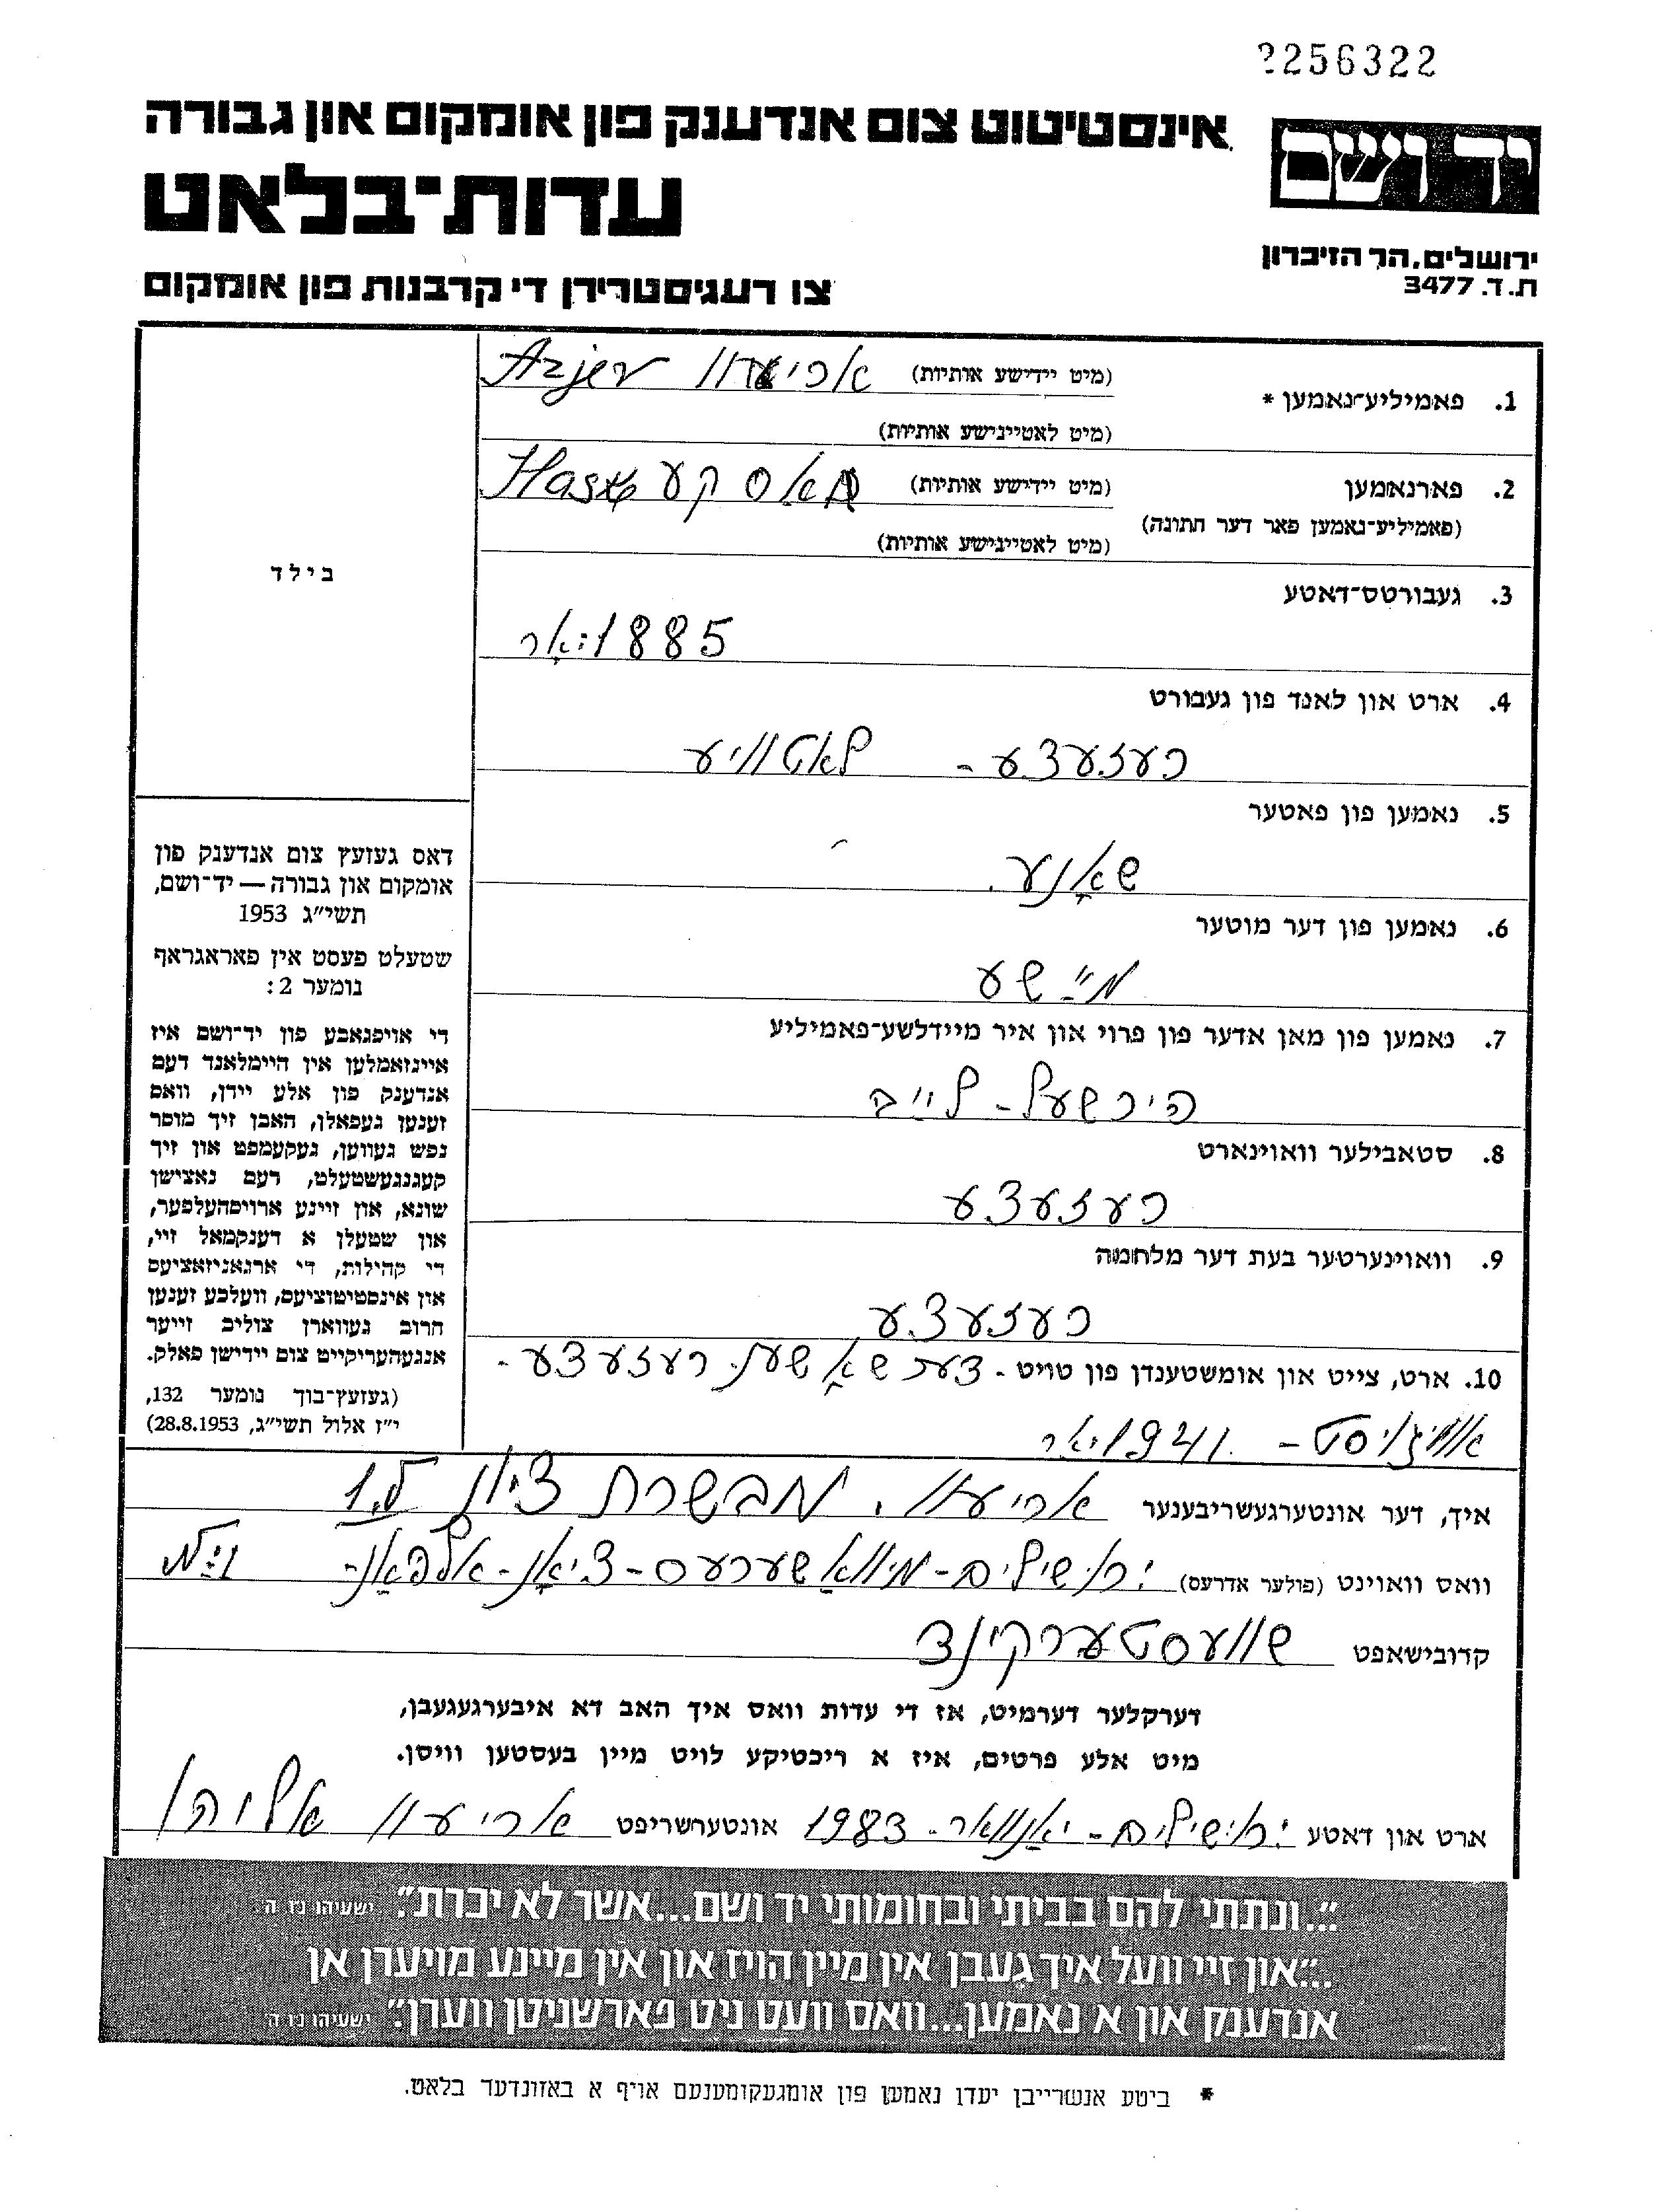 2256322
אינסטיטוט צום אנדענק פון אומקום און גבורה
יד ושם
עדות־בלאט
ירושלים, הר הזיכרון
ת.ד. 3477
צו רעגיסטרירן די קרבנות פון אומקום
1. פאמיליע־נאמען * (מיט יידישע אותיות) אריעוו Azjev
(מיט לאטיינישע אותיות)
2. פארנאמען (מיט יידישע אותיות) האסקע Has
(פאמיליע־נאמען פאר דער חתונה) (מיט לאטייגישע אותיות)
בילד
3. געבורטס־דאטע
1885 יאָר
4. ארט און לאנד פון געבורט
רעזעצע - לאטוויע
5. נאמען פון פאטער
שאָנע.
6. נאמען פון דער מוטער
מײַשע
7. נאמען פון מאן אדער פון פרוי און איר מיידלשע־פאמיליע
הירשעל - לייב
8. סטאבילער וואוינארט
רעזעצע
9. וואוינערטער בעת דער מלחמה
רעזעצע
10. ארט, צייט און אומשטענדן פון טויט - רעזעצע -
אווגוסט - 1941 יאָר
דאס געזעץ צום אנדענק פון
אומקום און גבורה — יד־ושם,
תשי״ג 1953
שטעלט פעסט אין פאראגראף
נומער 2:
די אויפגאבע פון יד־ושם איז
איינזאמלען אין היימלאנד דעם
אנדענק פון אלע יידן, וואס
זענען געפאלן, האבן זיך מוסר
נפש געווען, געקעמפט און זיך
קעגנגעשטעלט, דעם נאצישן
שונא, און זיינע ארויסהעלפער,
און שטעלן א דענקמאל זיי,
די קהילות, די ארגאניזאציעס
און אינסטיטוציעס, וועלכע זענען
חרוב געווארן צוליב זייער
אנגעהעריקייט צום יידישן פאלק.
(געזעץ־בוך נומער 132,
י״ז אלול תשי״ג, 28.8.1953)
איך, דער אונטערגעשריבענער אריעוו. מבשרת ציון
וואס וואוינט (פולער אדרעס) ירושילים - מיוואַשערעס - ציאָן -
קרובישאפט שוועסטערקינד
דערקלער דערמיט, אז די עדות וואס איך האב דא איבערגעגעבן,
מיט אלע פרטים, איז א ריכטיקע לויט מיין בעסטען וויסן.
ארט און דאטע ירושילים - יאַנוואר. 1983 אונטערשריפט אריעוו אליהו
״...ונתתי להם בביתי ובחומותי יד ושם...אשר לא יכרת״. ישעיהו נו ה
״...און זיי וועל איך געבן אין מיין הויז און אין מיינע מויערן אן
אנדענק און א נאמען...וואס וועט ניט פארשניטן ווערן״. ישעיהו נו ה
* ביטע אנשרייבן יעדן נאמען פון אומגעקומענעם אויף א באזונדער בלאט.